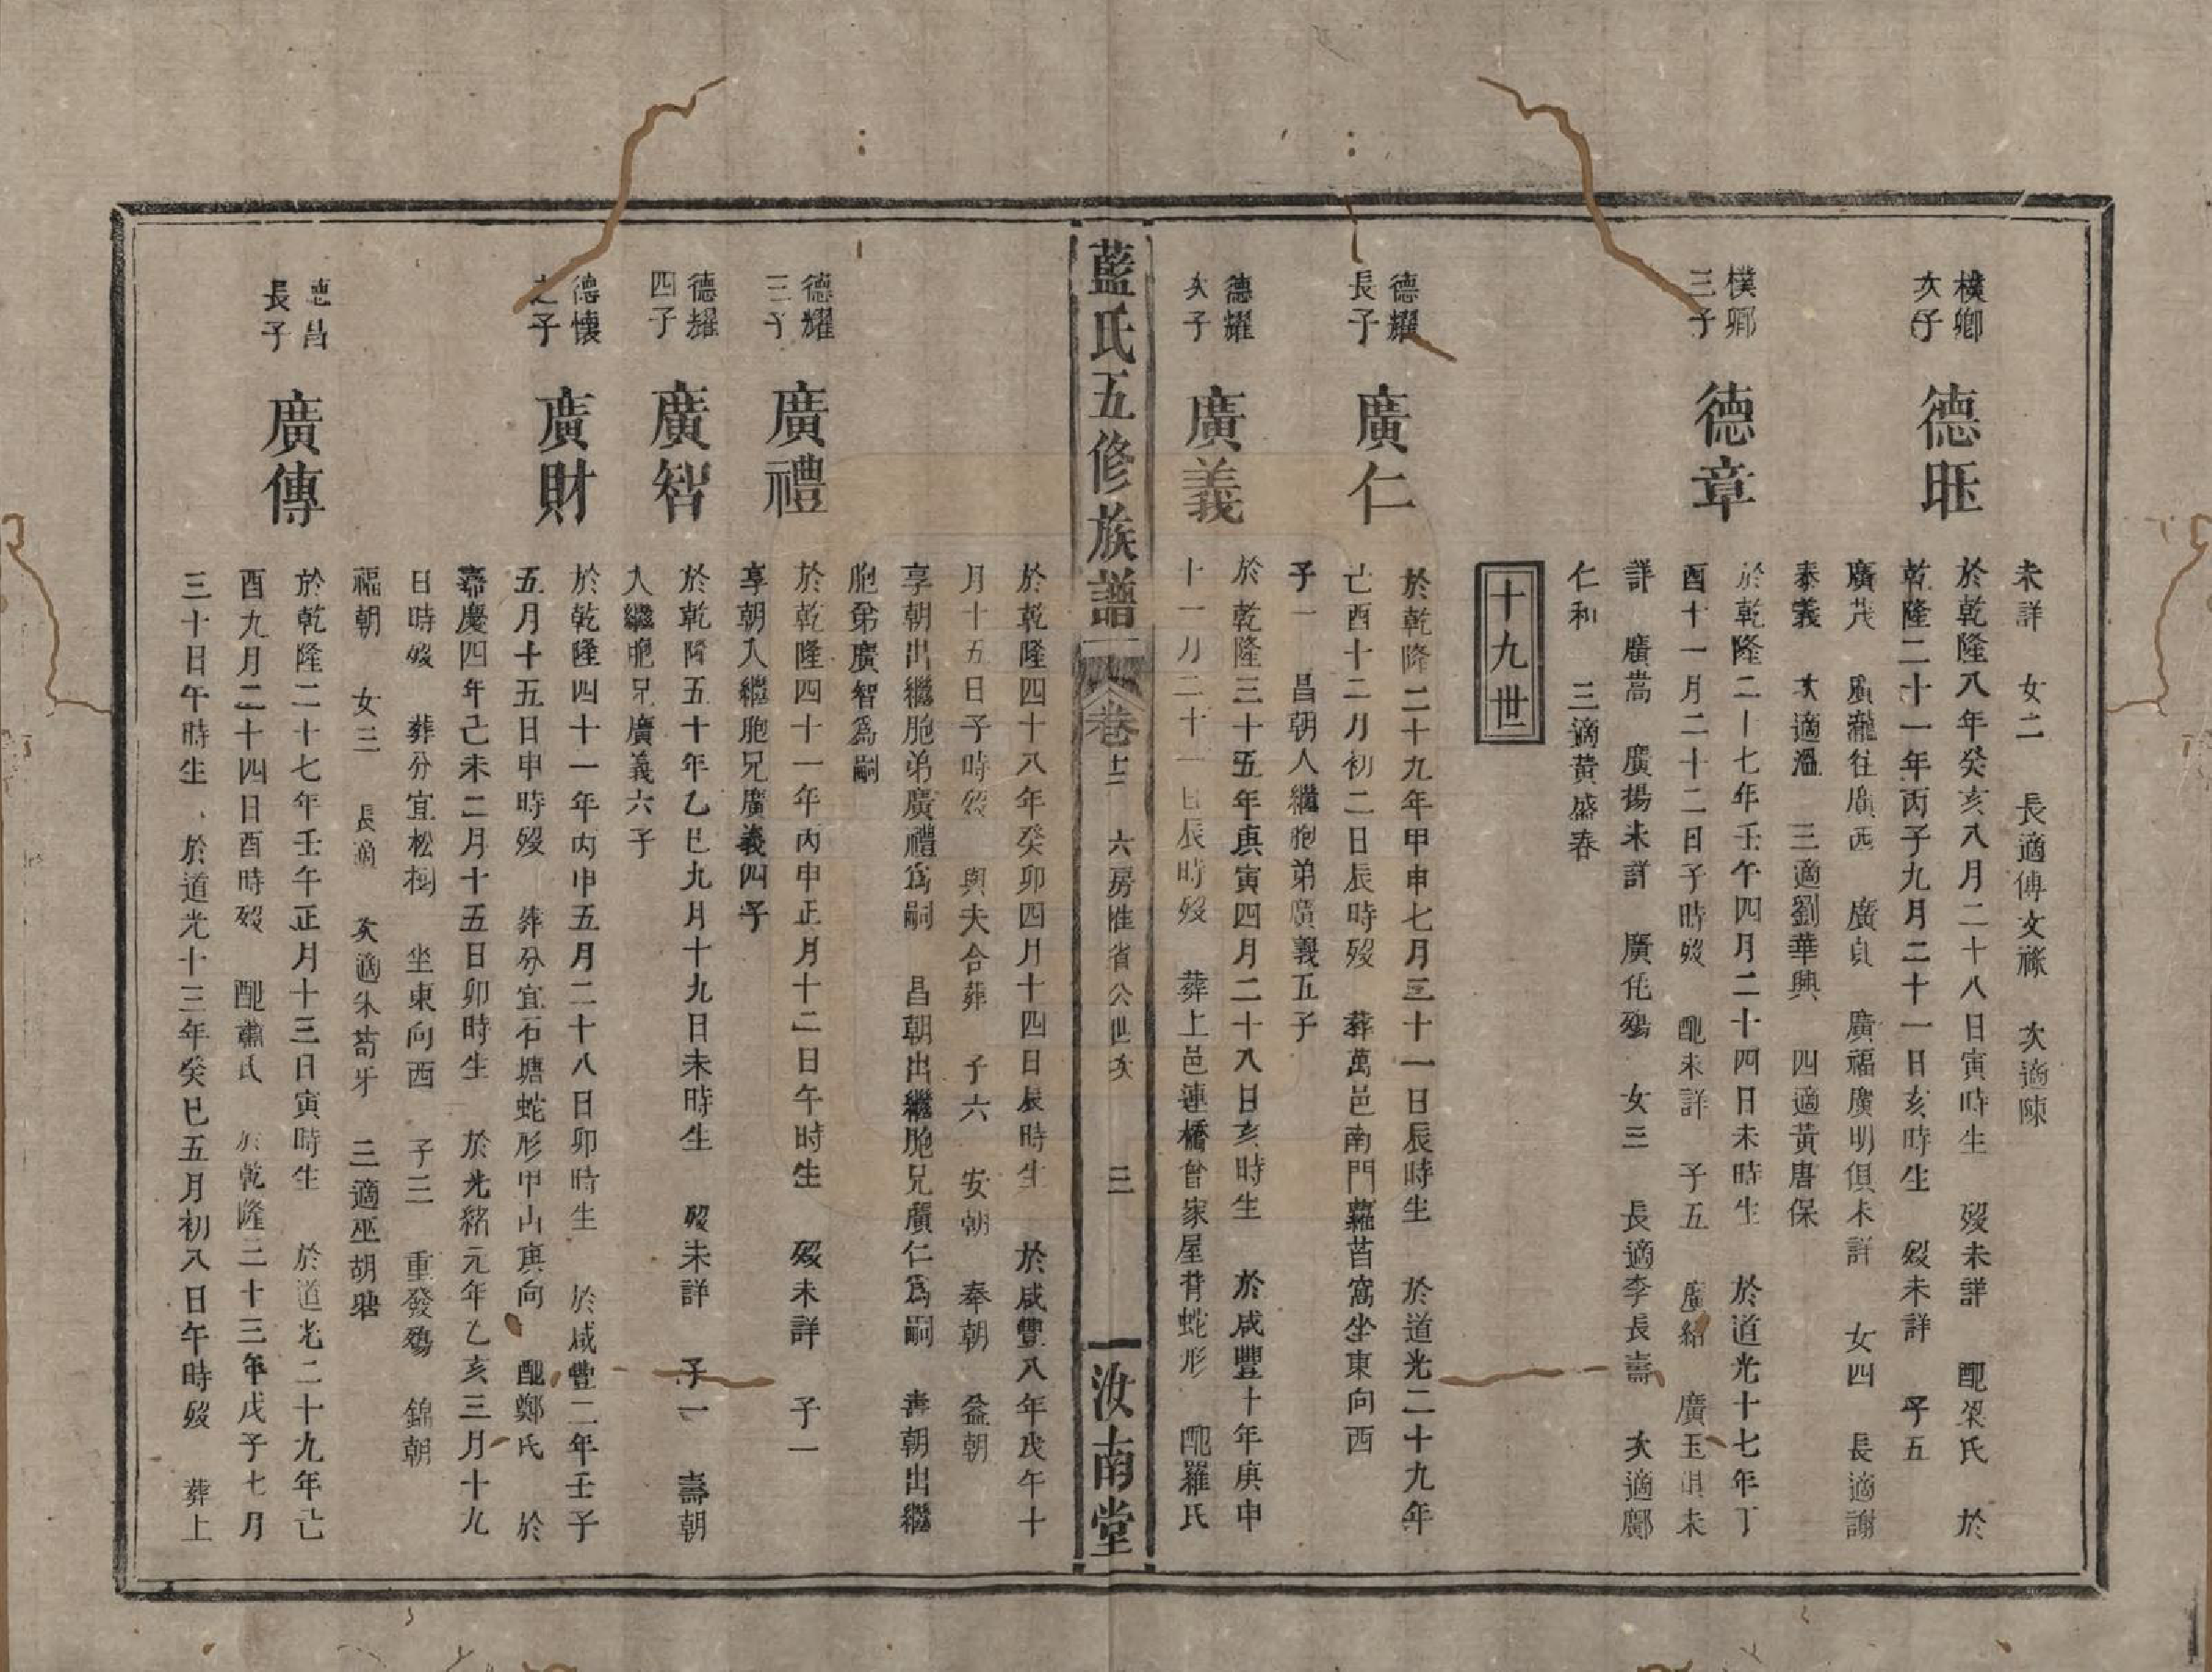 未詳 女二 長適傅文祿 次適陳
樸卿次子 德䀕 於乾隆八年癸亥八月二十八日寅時生 歿未詳 配梁氏 於
乾隆二十一年丙子九月二十一日亥時生 歿未詳 子五
廣茂 廣瀧往廣西 廣貞 廣福廣明俱未詳 女四 長適謝
泰義 次適溫 三適劉華興 四適黃唐保
樸卿三子 德章 於乾隆二十七年壬午四月二十四日未時生 於道光十七年丁
酉十一月二十二日子時歿 配未詳 子五 廣紹 廣玉俱未
詳 廣嵩 廣揚未詳 廣化殤 女三 長適李長壽 次適鄺
仁和 三適黃盛春
十九世
德耀長子 廣仁 於乾隆二十九年甲申七月三十一日辰時生 於道光二十九年
己酉十二月初二日辰時歿 葬萬邑南門蘿苢窩坐東向西
子一 昌朝入繼胞弟廣義五子
德耀次子 廣義 於乾隆三十五年庚寅四月二十八日亥時生 於咸豐十年庚申
十一月二十一日辰時歿 葬上邑連橋曾家屋背蛇形 配羅氏
藍氏五修族譜 卷十二 六房惟省公世次 三 汝南堂
於乾隆四十八年癸卯四月十四日辰時生 於咸豐八年戊午十
月十五日子時歿 與夫合葬 子六 安朝 奉朝 益朝
享朝出繼胞弟廣禮為嗣 昌朝出繼胞兄廣仁為嗣 壽朝出繼
胞弟廣智為嗣
德耀三子 廣禮 於乾隆四十一年丙申正月十二日午時生 歿未詳 子一
享朝入繼胞兄廣義四子
德耀四子 廣智 於乾隆五十年乙巳九月十九日未時生 歿未詳 子一 壽朝
入繼胞兄廣義六子
德懷之子 廣財 於乾隆四十一年丙申五月二十八日卯時生 於咸豐二年壬子
五月十五日申時歿 葬分宜石塘蛇形甲山庚向 配鄭氏 於
嘉慶四年己未二月十五日卯時生 於光緒元年乙亥三月十九
日時歿 葬分宜松樹 坐東向西 子三 重發殤 錦朝
福朝 女三 長適 次適朱蒿牙 三適巫胡瑭
德昌長子 廣傳 於乾隆二十七年壬午正月十三日寅時生 於道光二十九年己
酉九月二十四日酉時歿 配蕭氏 於乾隆三十三年戊子七月
三十日午時生 於道光十三年癸巳五月初八日午時歿 葬上